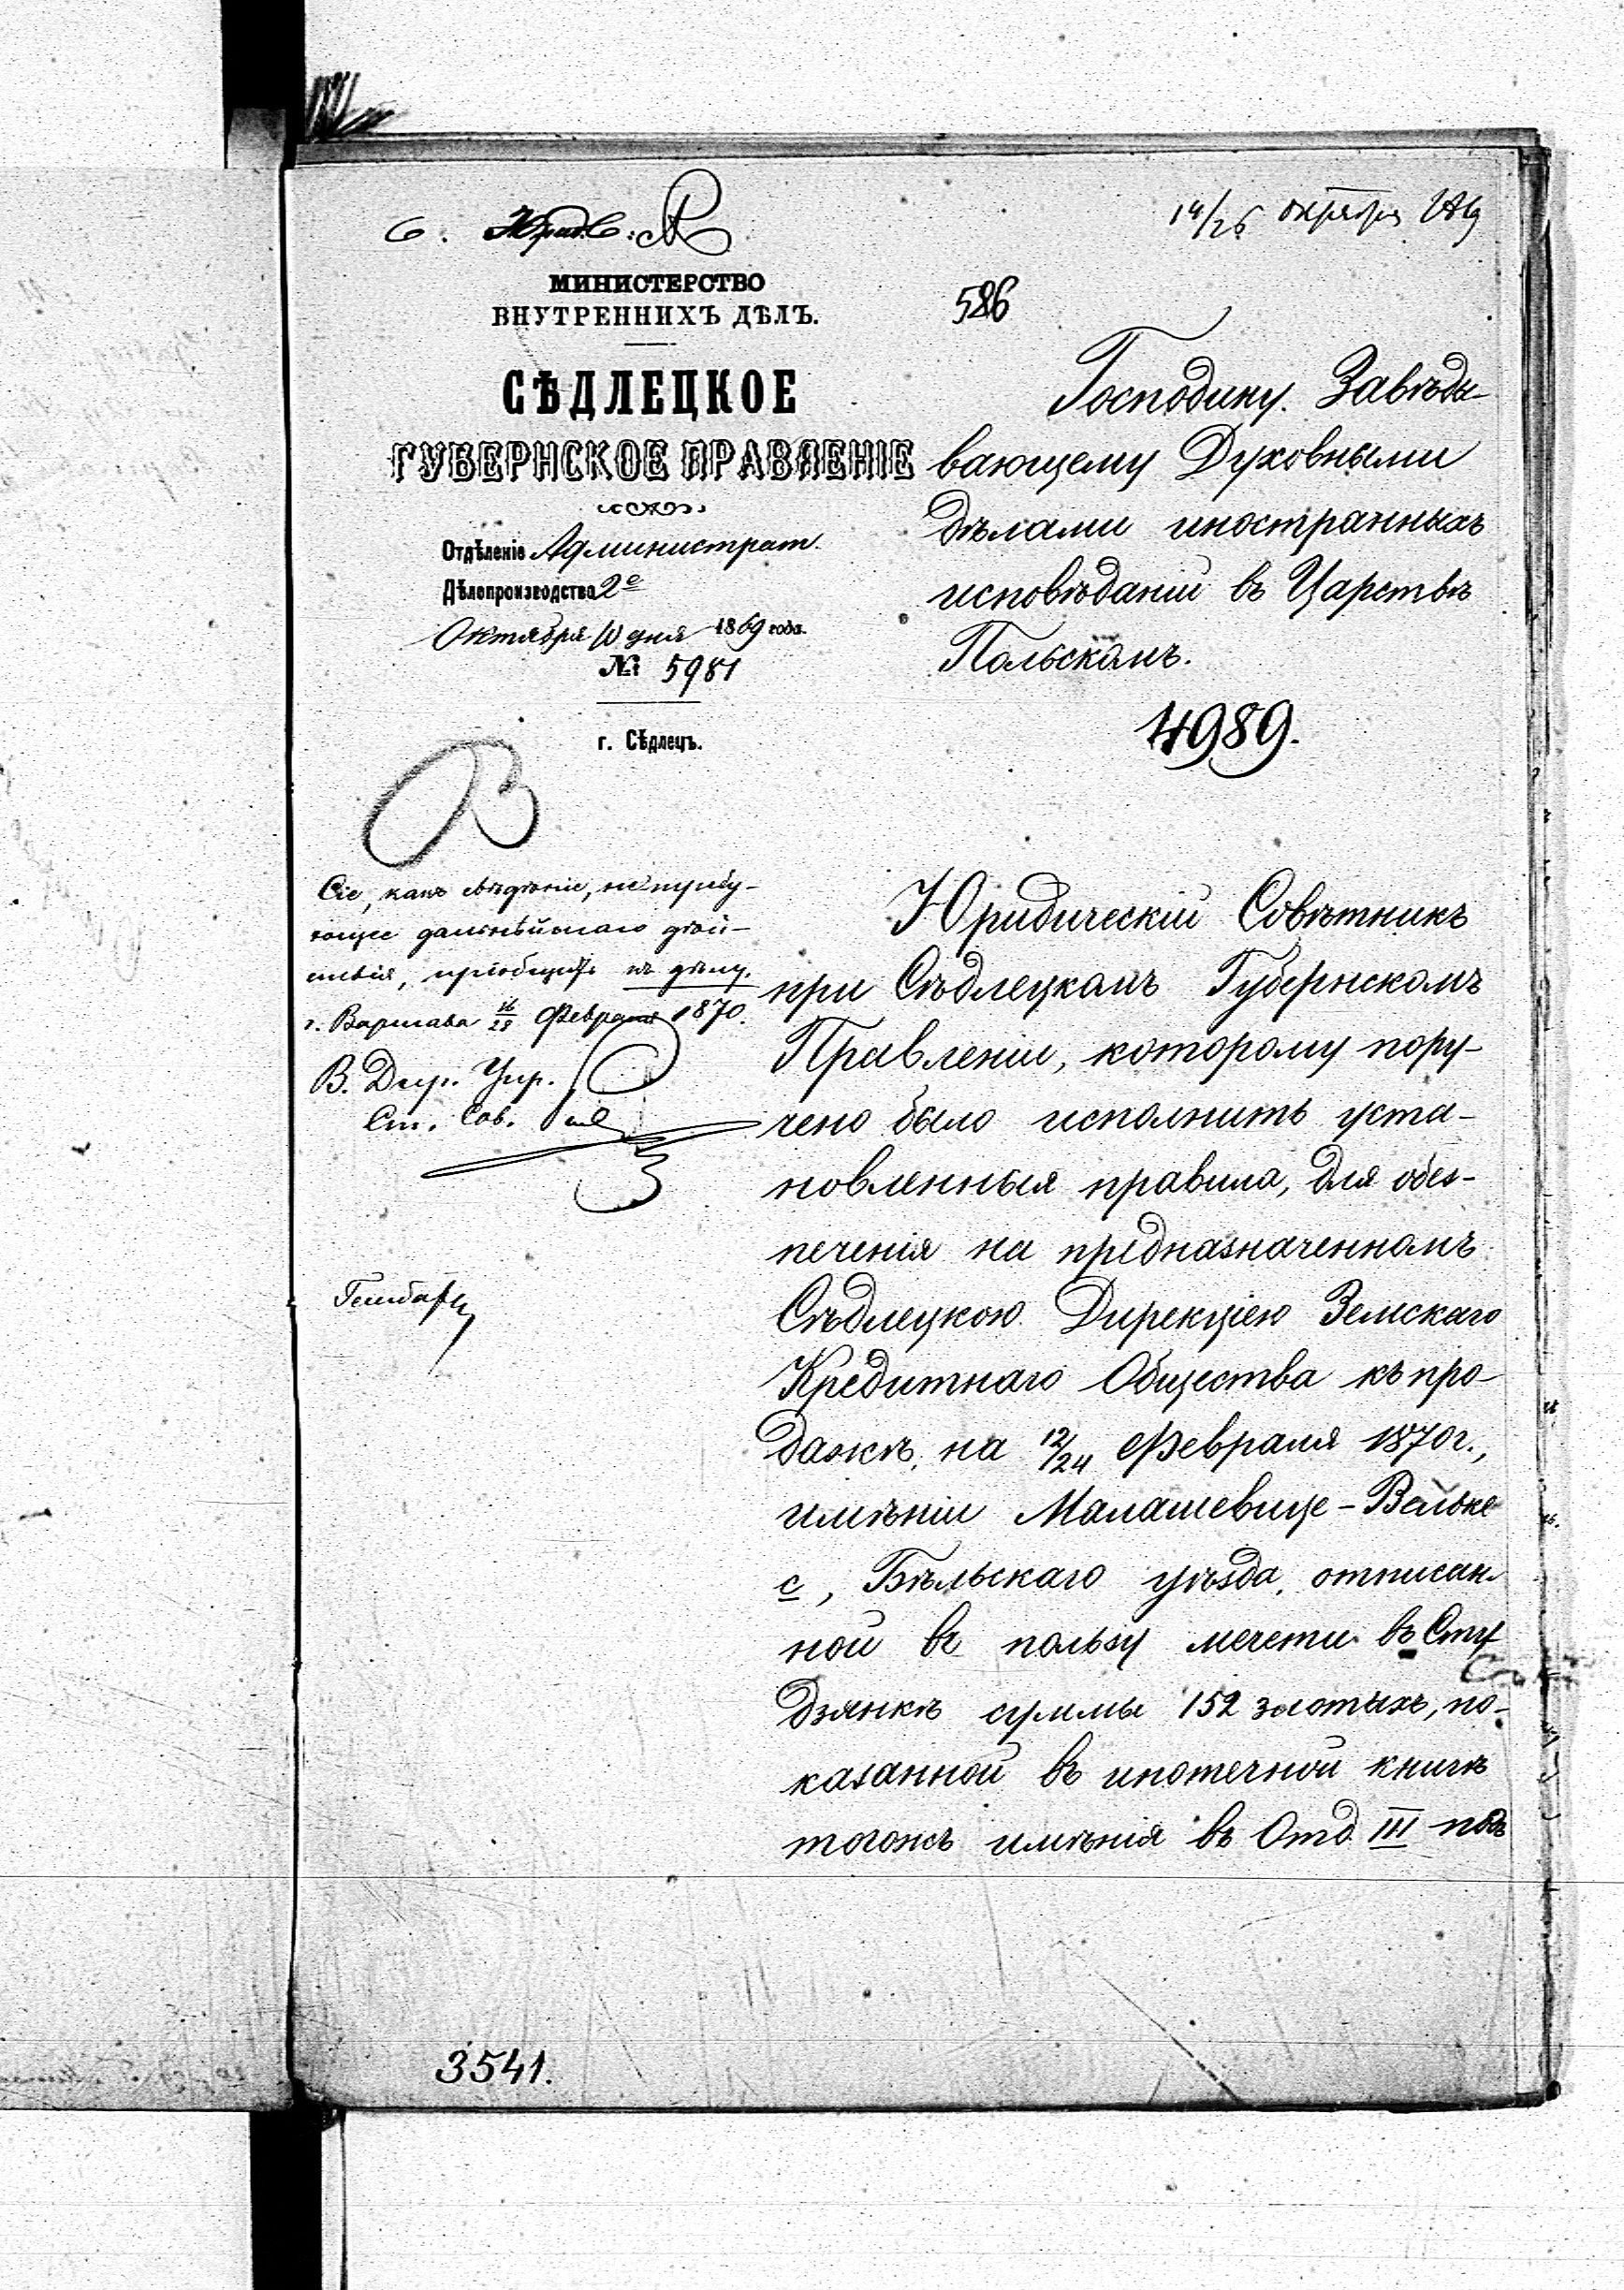 14/26 октября 1869
МИНИСТЕРСТВО
ВНУТРЕННИХЪ ДѢЛЪ.
СѢДЛЕЦКОЕ
ГУБЕРНСКОЕ ПРАВЛЕНІЕ
Отдѣленіе Администрат.
Дѣлопроизводства 2е
Октября 10 дня 1869 года.
№ 5981
г. Сѣдлецъ.
586
Господину Завѣды-
вающему Духовными
дѣлами иностранныхъ
исповѣданій въ Царствѣ
Польскомъ.
4989.
Сіе, какъ свѣдѣніе, не требу-
ющее дальнѣйшаго дѣй-
ствія, пріобщить къ дѣлу.
г. Варшава 16/28 Февраля 1870.
В. Дир. Упр.
Ст. Сов.
Юридическій Совѣтникъ
при Сѣдлецкомъ Губернскомъ
Правленіи, которому пору-
чено было исполнить уста-
новленныя правила, для обез-
печенія на предназначенномъ
Сѣдлецкою Дирекціею Земскаго
Кредитнаго Общества къ про-
дажѣ, на 12/24 Февраля 1870 г.,
имѣніи Малашевице-Вельке
с, Бѣльскаго уѣзда, отписан-
ной въ пользу мечети въ Сту
дзянкѣ суммы 152 злотыхъ, по-
казанной въ ипотечной книгѣ
тогожъ имѣнія въ Отд. III подъ
3541.